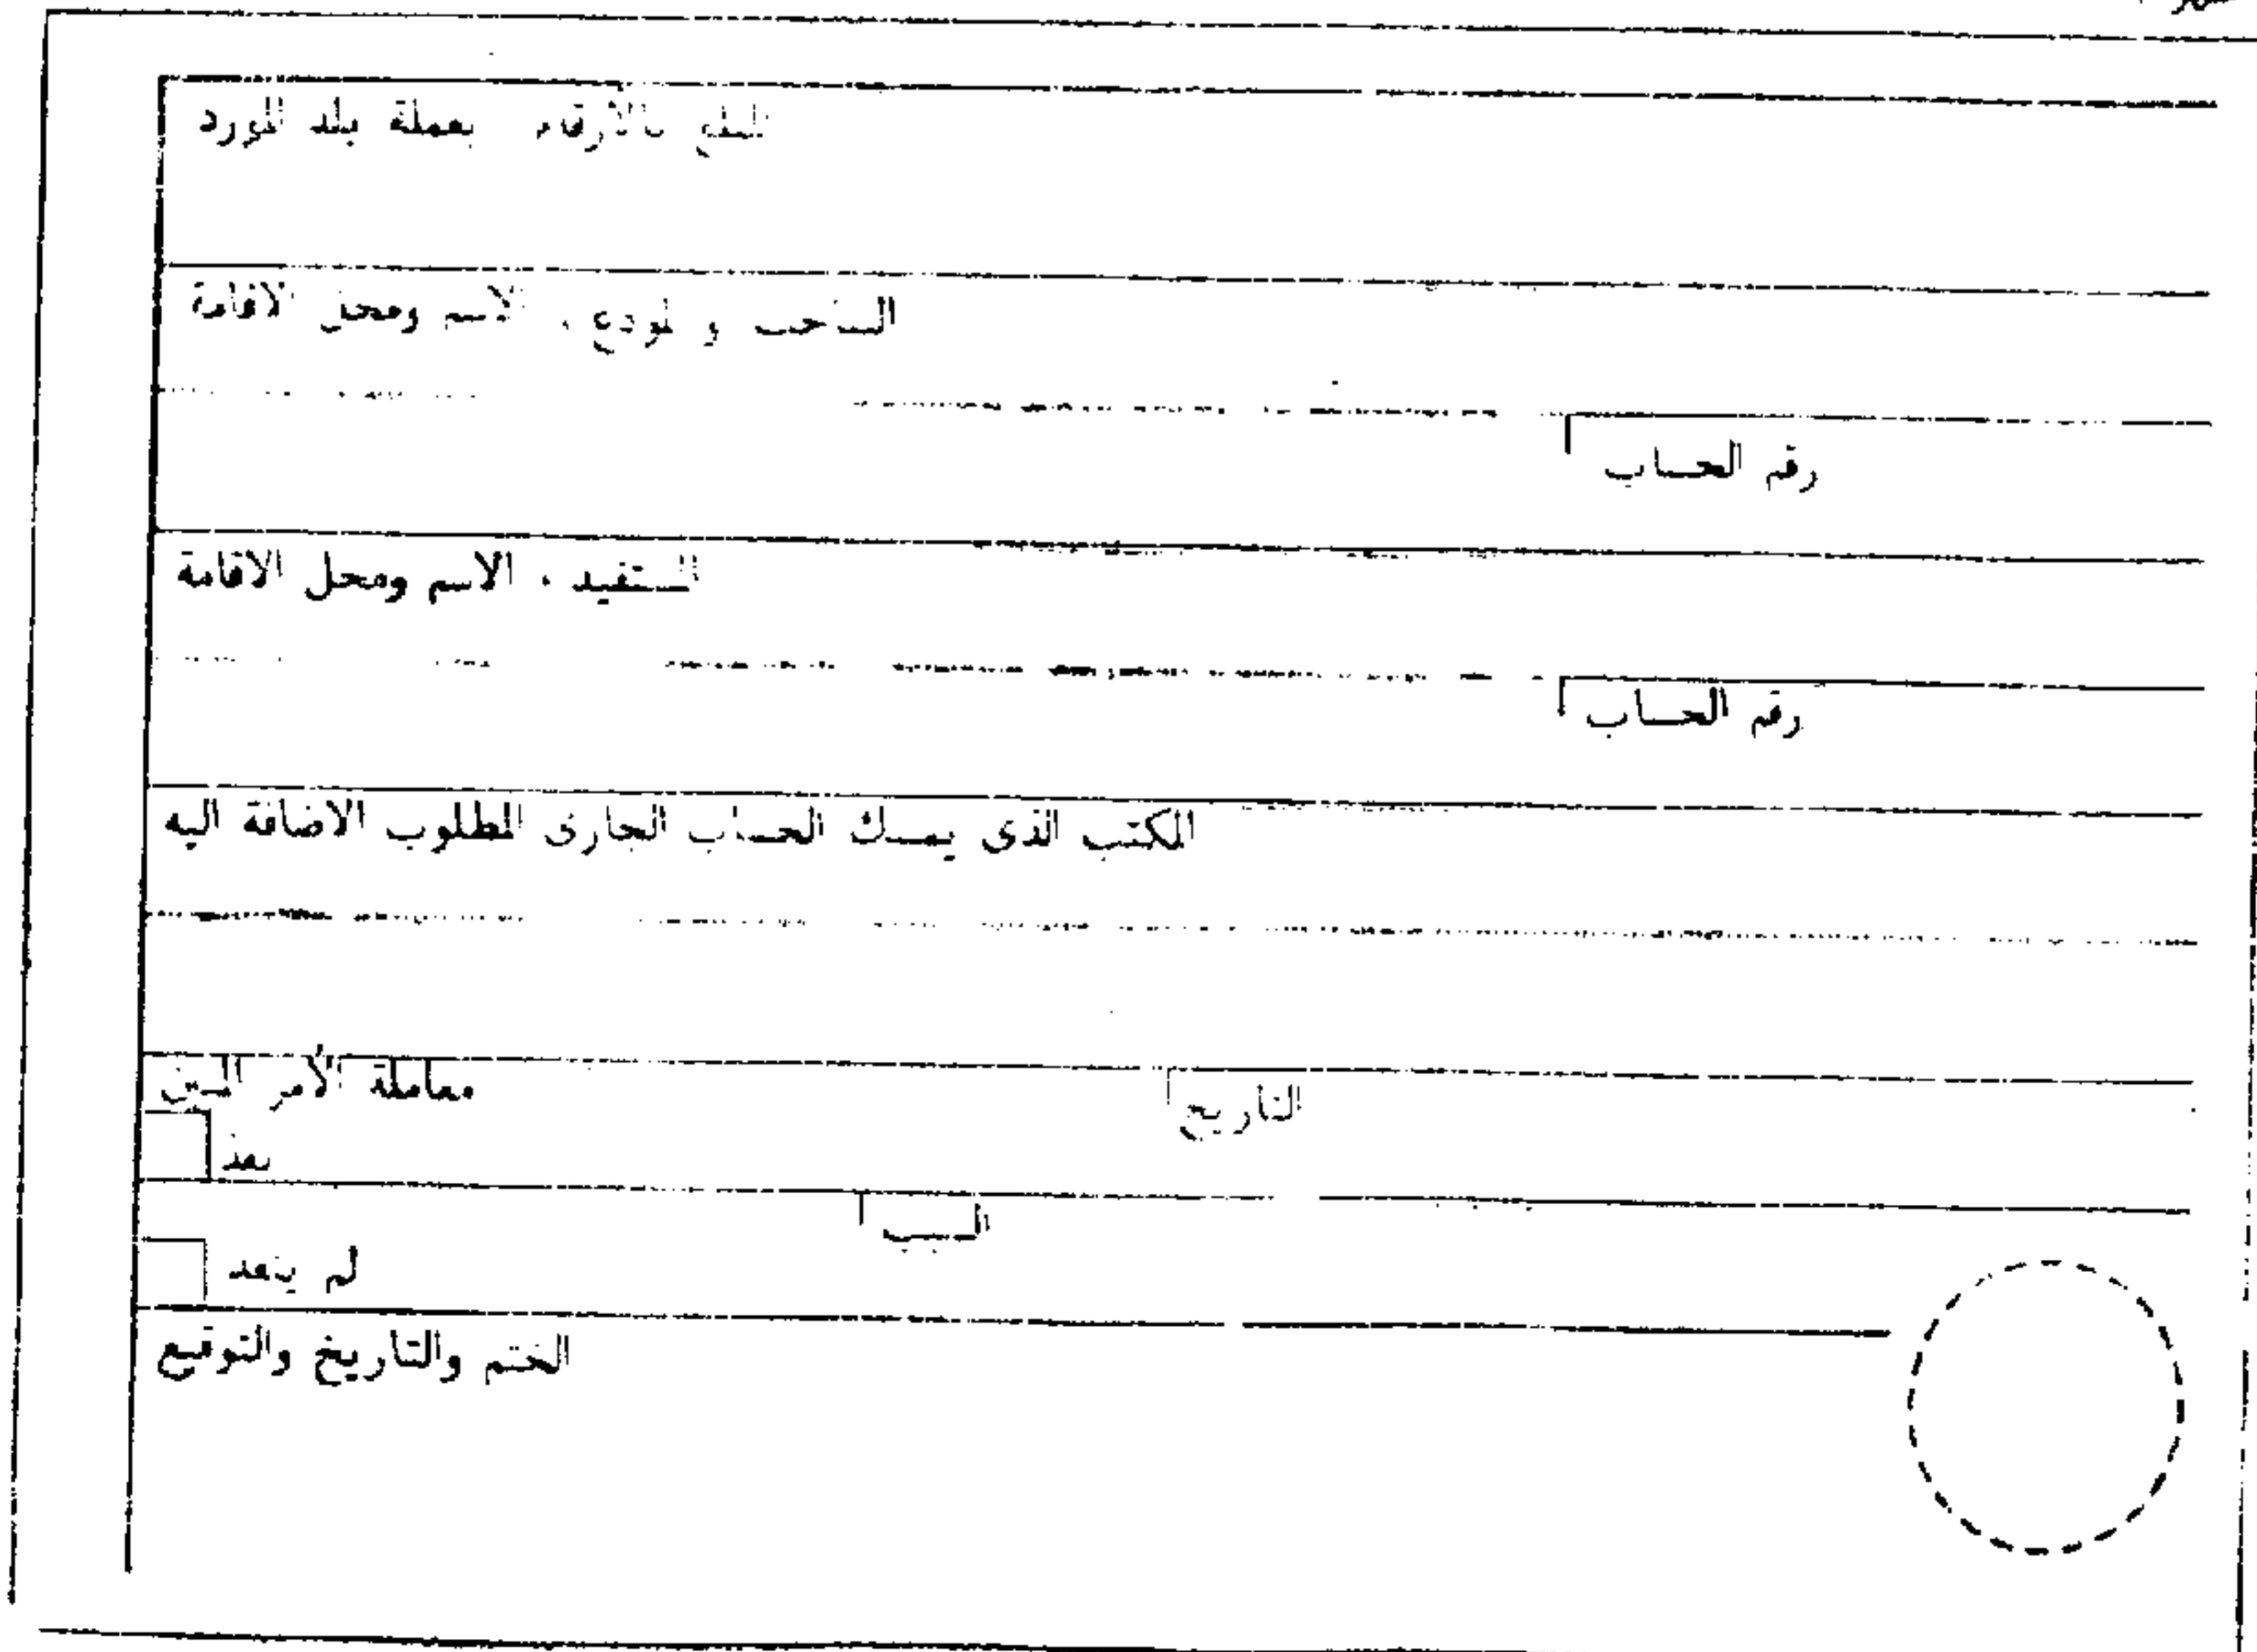 المبلغ بالأرقام بعملة بلد المورد
الساحب والمودع ، الاسم ومحل الاقامة
رقم الحساب
المستفيد ، الاسم ومحل الاقامة
رقم الحساب
المكتب الذى يمسك الحساب الجارى المطلوب الاضافة اليه
معاملة الأمر
التاريخ
نفذ
السبب
لم ينفذ
الختم والتاريخ والتوقيع